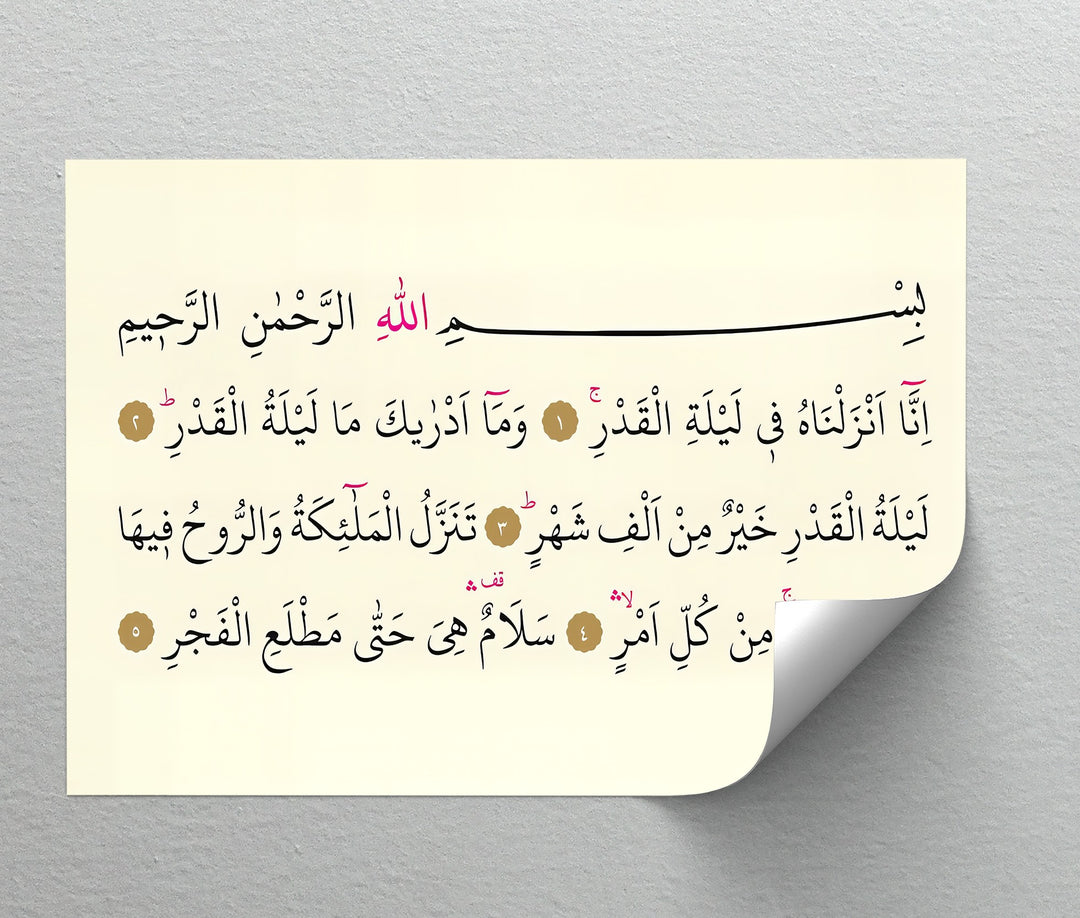 بِسْــــــــمِ اللّٰهِ الرَّحْمٰنِ الرَّح۪يمِ
اِنَّٓا اَنْزَلْنَاهُ ف۪ي لَيْلَةِ الْقَدْرِۚ ١ وَمَٓا اَدْرٰيكَ مَا لَيْلَةُ الْقَدْرِۜ ٢
لَيْلَةُ الْقَدْرِ خَيْرٌ مِنْ اَلْفِ شَهْرٍۜ ٣ تَنَزَّلُ الْمَلٰٓئِكَةُ وَالرُّوحُ ف۪يهَا
مِنْ كُلِّ اَمْرٍۙ ٤ سَلَامٌ۠ هِيَ حَتّٰى مَطْلَعِ الْفَجْرِ ٥